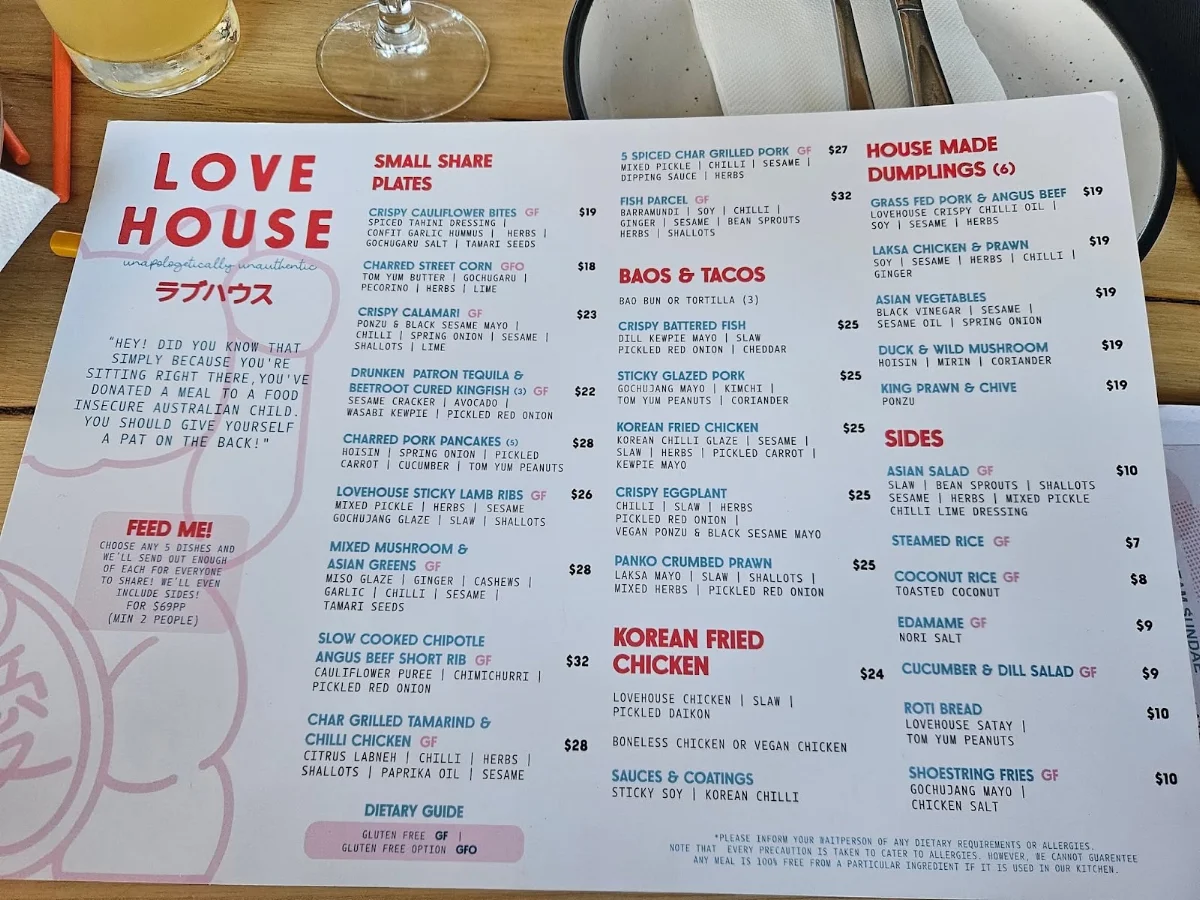 LOVE
HOUSE
unapologetically unauthentic
ラブハウス
"HEY! DID YOU KNOW THAT
SIMPLY BECAUSE YOU'RE
SITTING RIGHT THERE,YOU'VE
DONATED A MEAL TO A FOOD
INSECURE AUSTRALIAN CHILD.
YOU SHOULD GIVE YOURSELF
A PAT ON THE BACK!"
FEED ME!
CHOOSE ANY 5 DISHES AND
WE'LL SEND OUT ENOUGH
OF EACH FOR EVERYONE
TO SHARE! WE'LL EVEN
INCLUDE SIDES!
FOR $69PP
(MIN 2 PEOPLE)
愛
SMALL SHARE
PLATES
CRISPY CAULIFLOWER BITES GF $19
SPICED TAHINI DRESSING |
CONFIT GARLIC HUMMUS | HERBS |
GOCHUGARU SALT | TAMARI SEEDS
CHARRED STREET CORN GFO $18
TOM YUM BUTTER | GOCHUGARU |
PECORINO | HERBS | LIME
CRISPY CALAMARI GF $23
PONZU & BLACK SESAME MAYO |
CHILLI | SPRING ONION | SESAME |
SHALLOTS | LIME
DRUNKEN PATRON TEQUILA &
BEETROOT CURED KINGFISH (3) GF $22
SESAME CRACKER | AVOCADO |
WASABI KEWPIE | PICKLED RED ONION
CHARRED PORK PANCAKES (5) $28
HOISIN | SPRING ONION | PICKLED
CARROT | CUCUMBER | TOM YUM PEANUTS
LOVEHOUSE STICKY LAMB RIBS GF $26
MIXED PICKLE | HERBS | SESAME
GOCHUJANG GLAZE | SLAW | SHALLOTS
MIXED MUSHROOM &
ASIAN GREENS GF $28
MISO GLAZE | GINGER | CASHEWS |
GARLIC | CHILLI | SESAME |
TAMARI SEEDS
SLOW COOKED CHIPOTLE
ANGUS BEEF SHORT RIB GF $32
CAULIFLOWER PUREE | CHIMICHURRI |
PICKLED RED ONION
CHAR GRILLED TAMARIND &
CHILLI CHICKEN GF $28
CITRUS LABNEH | CHILLI | HERBS |
SHALLOTS | PAPRIKA OIL | SESAME
DIETARY GUIDE
GLUTEN FREE GF |
GLUTEN FREE OPTION GFO
5 SPICED CHAR GRILLED PORK GF $27
MIXED PICKLE | CHILLI | SESAME |
DIPPING SAUCE | HERBS
FISH PARCEL GF $32
BARRAMUNDI | SOY | CHILLI |
GINGER | SESAME | BEAN SPROUTS
HERBS | SHALLOTS
BAOS & TACOS
BAO BUN OR TORTILLA (3)
CRISPY BATTERED FISH $25
DILL KEWPIE MAYO | SLAW
PICKLED RED ONION | CHEDDAR
STICKY GLAZED PORK $25
GOCHUJANG MAYO | KIMCHI |
TOM YUM PEANUTS | CORIANDER
KOREAN FRIED CHICKEN $25
KOREAN CHILLI GLAZE | SESAME |
SLAW | HERBS | PICKLED CARROT |
KEWPIE MAYO
CRISPY EGGPLANT $25
CHILLI | SLAW | HERBS
PICKLED RED ONION |
VEGAN PONZU & BLACK SESAME MAYO
PANKO CRUMBED PRAWN $25
LAKSA MAYO | SLAW | SHALLOTS |
MIXED HERBS | PICKLED RED ONION
KOREAN FRIED
CHICKEN $24
LOVEHOUSE CHICKEN | SLAW |
PICKLED DAIKON
BONELESS CHICKEN OR VEGAN CHICKEN
SAUCES & COATINGS
STICKY SOY | KOREAN CHILLI
HOUSE MADE
DUMPLINGS (6)
GRASS FED PORK & ANGUS BEEF $19
LOVEHOUSE CRISPY CHILLI OIL |
SOY | SESAME | HERBS
LAKSA CHICKEN & PRAWN $19
SOY | SESAME | HERBS | CHILLI |
GINGER
ASIAN VEGETABLES $19
BLACK VINEGAR | SESAME |
SESAME OIL | SPRING ONION
DUCK & WILD MUSHROOM $19
HOISIN | MIRIN | CORIANDER
KING PRAWN & CHIVE $19
PONZU
SIDES
ASIAN SALAD GF $10
SLAW | BEAN SPROUTS | SHALLOTS
SESAME | HERBS | MIXED PICKLE
CHILLI LIME DRESSING
STEAMED RICE GF $7
COCONUT RICE GF $8
TOASTED COCONUT
EDAMAME GF $9
NORI SALT
CUCUMBER & DILL SALAD GF $9
ROTI BREAD $10
LOVEHOUSE SATAY |
TOM YUM PEANUTS
SHOESTRING FRIES GF $10
GOCHUJANG MAYO |
CHICKEN SALT
*PLEASE INFORM YOUR WAITPERSON OF ANY DIETARY REQUIREMENTS OR ALLERGIES.
NOTE THAT EVERY PRECAUTION IS TAKEN TO CATER TO ALLERGIES. HOWEVER, WE CANNOT GUARENTEE
ANY MEAL IS 100% FREE FROM A PARTICULAR INGREDIENT IF IT IS USED IN OUR KITCHEN.
SUNDAE